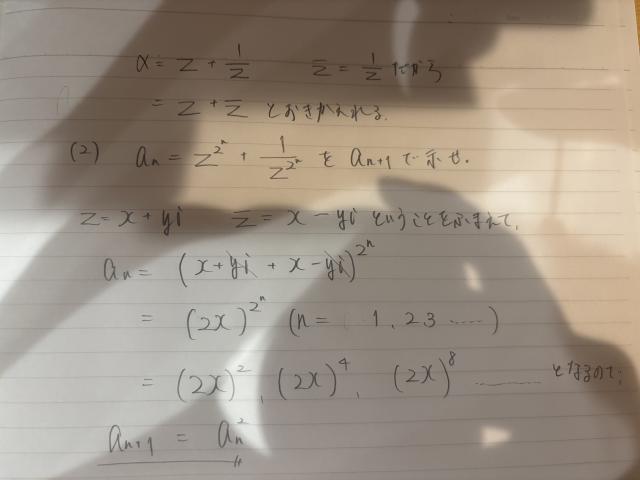 α = z + 1/z    z̄ = 1/z だから
= z + z̄ とおきかえれる.
(2) aₙ = z^{2^n} + 1/z^{2^n} を aₙ₊₁ で示せ.
z = x + yi    z̄ = x − yi ということをふまえて,
aₙ = (x + yi + x − yi)^{2^n}
= (2x)^{2^n} (n = 1, 2 3 ……)
= (2x)^2, (2x)^4, (2x)^8 ……… となるので,
aₙ₊₁ = aₙ^2